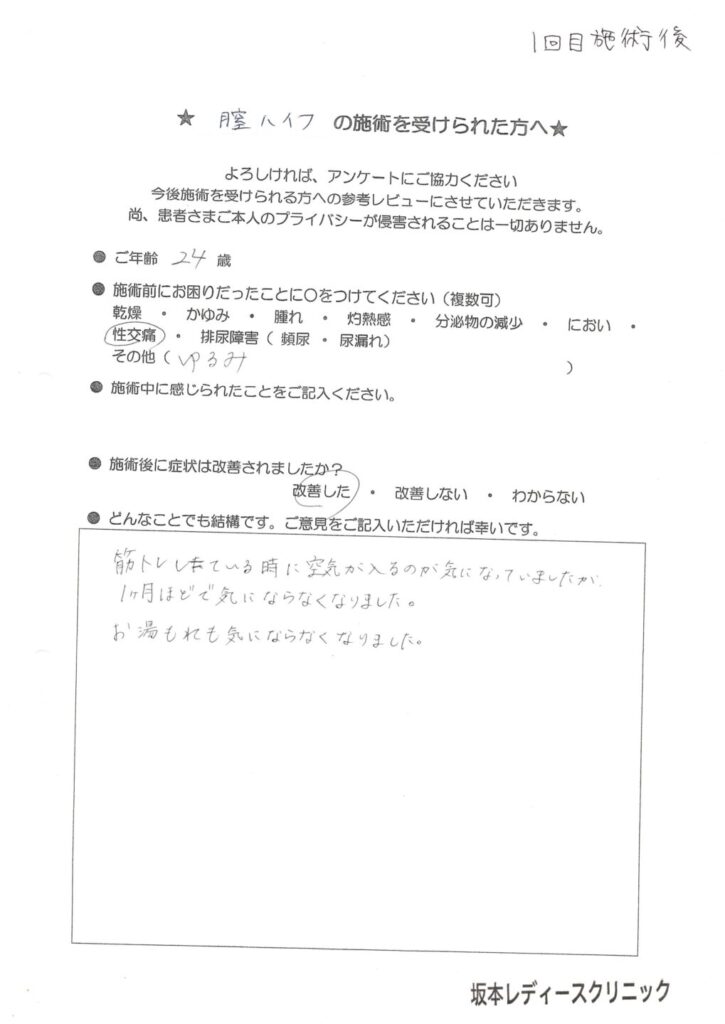 1回目施術後
★ 膣ハイフ の施術を受けられた方へ★
よろしければ、アンケートにご協力ください
今後施術を受けられる方への参考レビューにさせていただきます。
尚、患者さまご本人のプライバシーが侵害されることは一切ありません。
● ご年齢 24 歳
● 施術前にお困りだったことに○をつけてください（複数可）
乾燥 ・ かゆみ ・ 腫れ ・ 灼熱感 ・ 分泌物の減少 ・ におい ・
性交痛 ・ 排尿障害（ 頻尿 ・ 尿漏れ）
その他（ ゆるみ ）
● 施術中に感じられたことをご記入ください。
● 施術後に症状は改善されましたか？
改善した ・ 改善しない ・ わからない
● どんなことでも結構です。ご意見をご記入いただければ幸いです。
筋トレしている時に空気が入るのが気になっていましたが、
1ヶ月ほどで気にならなくなりました。
お湯もれも気にならなくなりました。
坂本レディースクリニック